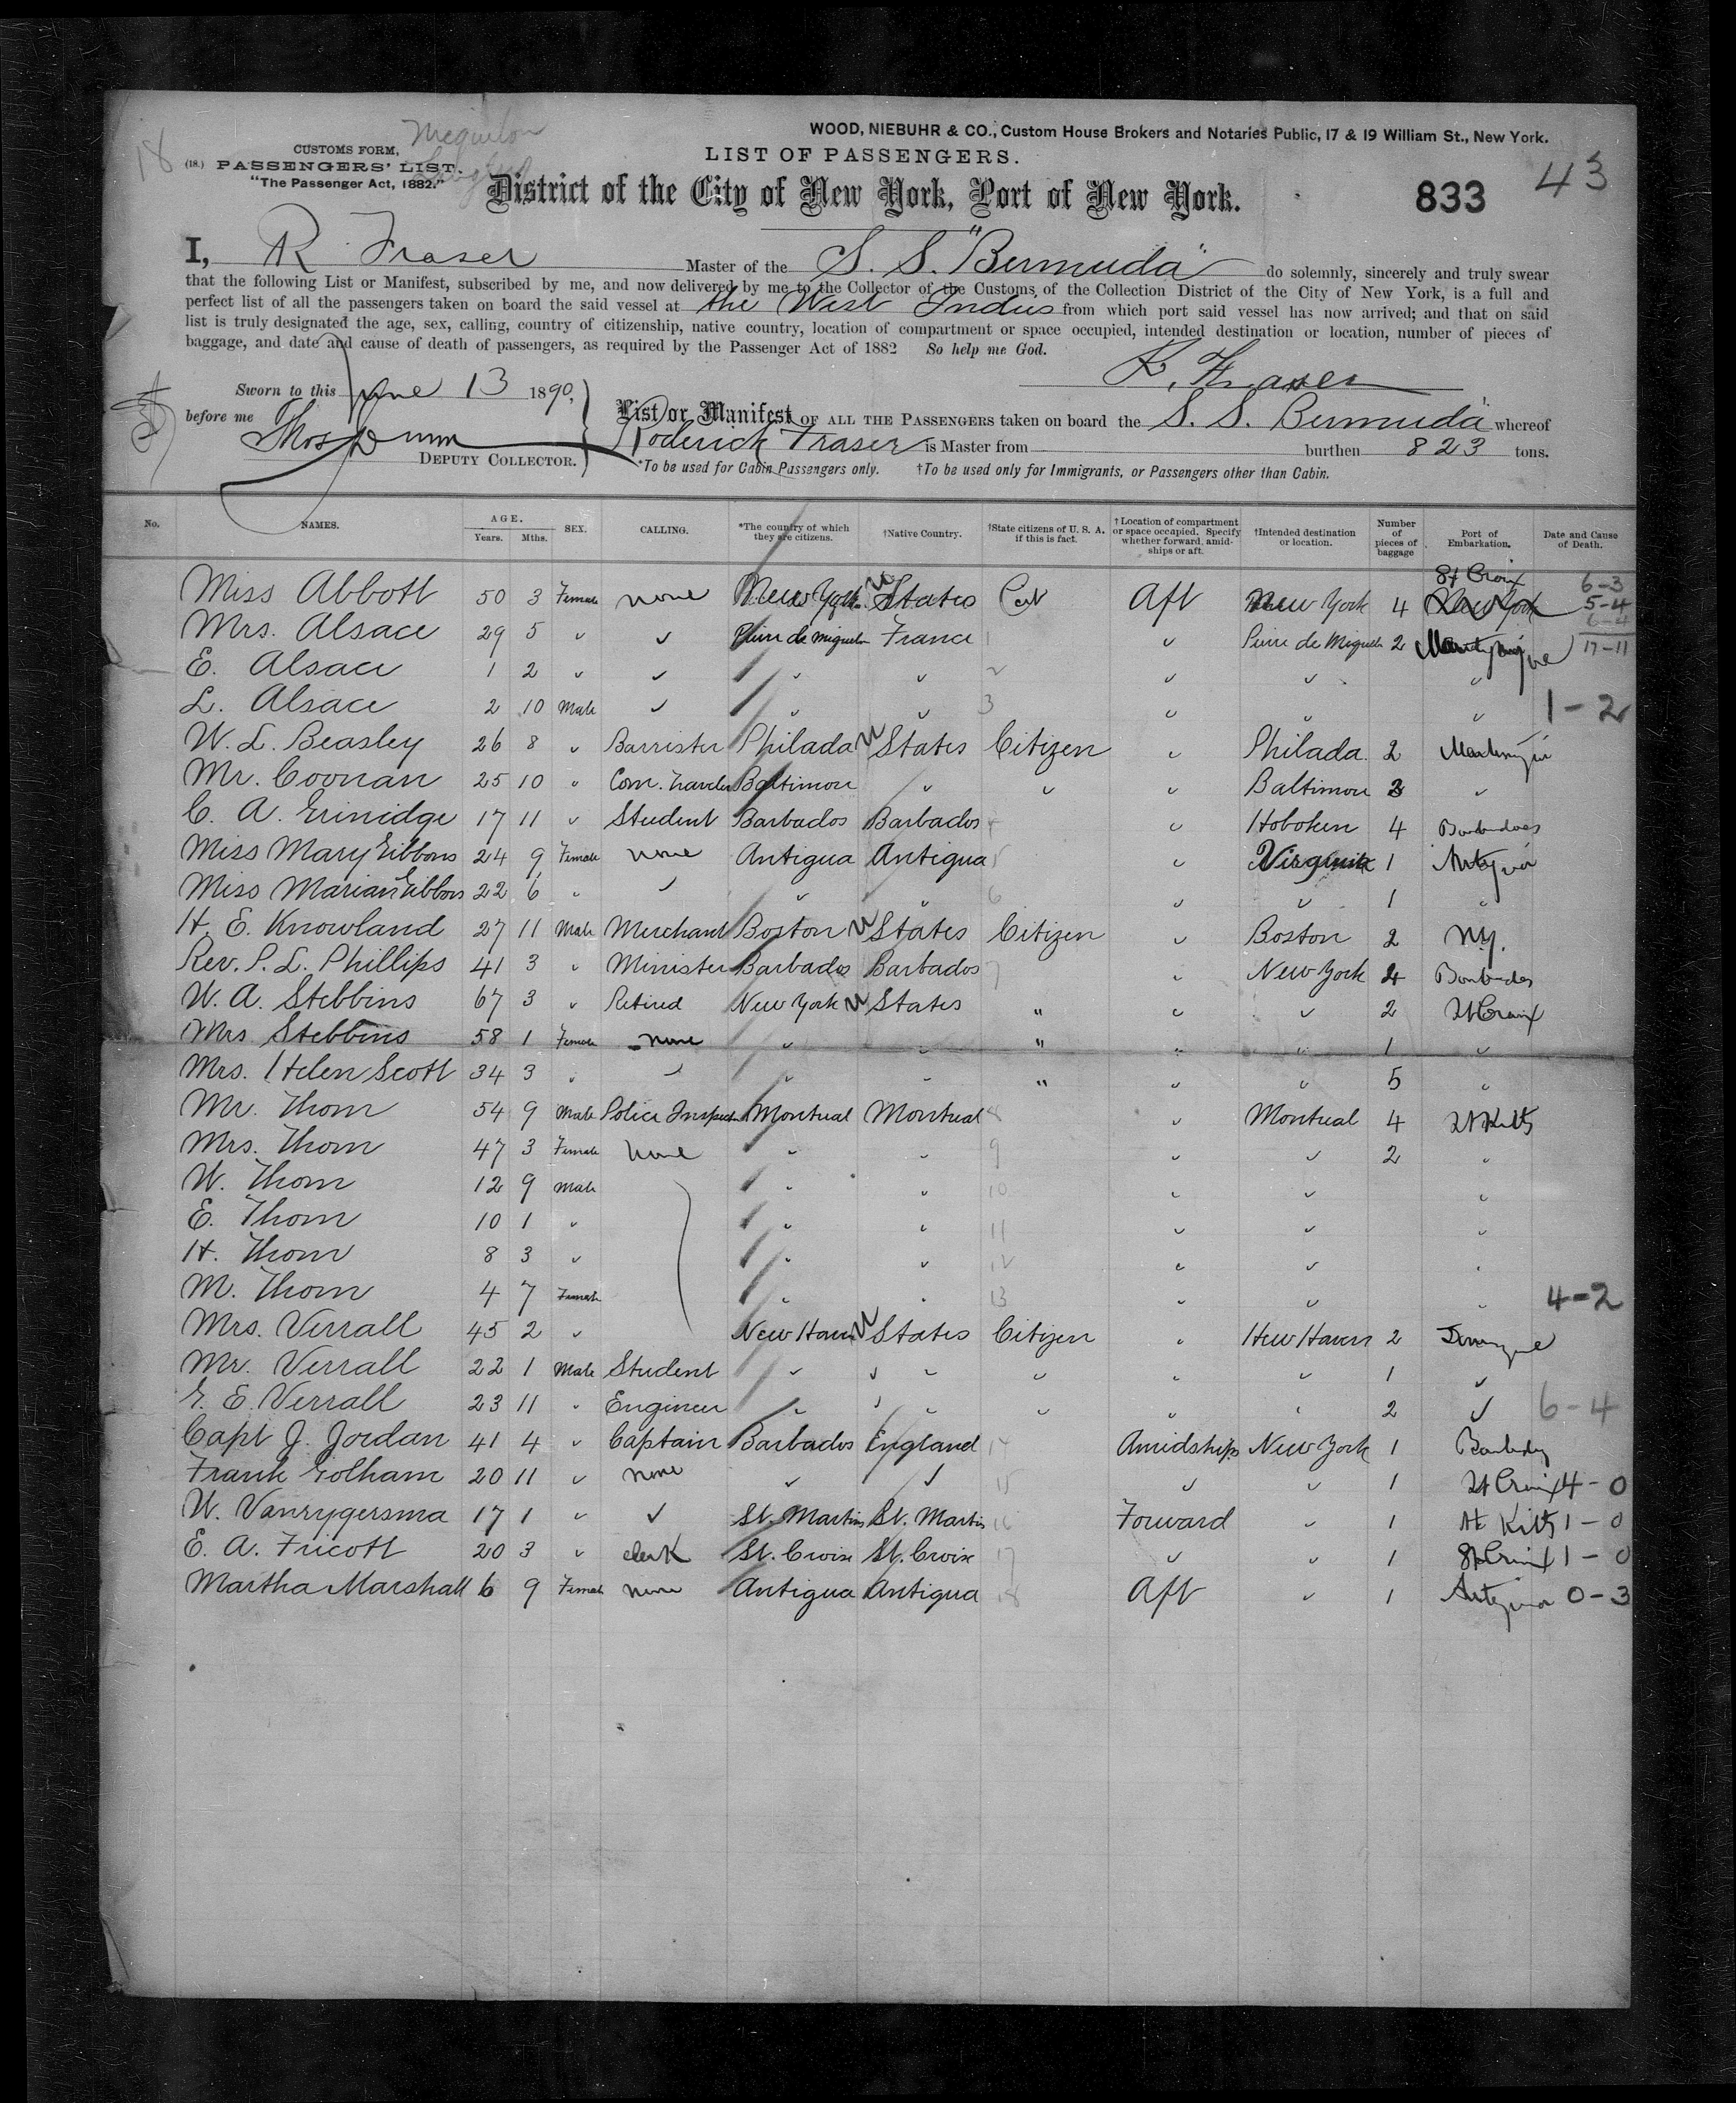 18
Miquelon
WOOD, NIEBUHR & CO., Custom House Brokers and Notaries Public, 17 & 19 William St., New York.
CUSTOMS FORM,
(18.) PASSENGERS' LIST.
"The Passenger Act, 1882."
LIST OF PASSENGERS.
District of the City of New York, Port of New York.
833
43
I, R Fraser Master of the S. S. "Bermuda" do solemnly, sincerely and truly swear
that the following List or Manifest, subscribed by me, and now delivered by me to the Collector of the Customs of the Collection District of the City of New York, is a full and
perfect list of all the passengers taken on board the said vessel at the West Indies from which port said vessel has now arrived; and that on said
list is truly designated the age, sex, calling, country of citizenship, native country, location of compartment or space occupied, intended destination or location, number of pieces of
baggage, and date and cause of death of passengers, as required by the Passenger Act of 1882 So help me God.
R. Fraser
Sworn to this June 13 1890,
before me Thos Dunn
DEPUTY COLLECTOR.
List or Manifest OF ALL THE PASSENGERS taken on board the S. S. Bermuda whereof
Roderick Fraser is Master from burthen 823 tons.
*To be used for Cabin Passengers only. †To be used only for Immigrants, or Passengers other than Cabin.
No. NAMES. AGE. Years. Mths. SEX. CALLING. *The country of which they are citizens. †Native Country. †State citizens of U. S. A. if this is fact. †Location of compartment or space occupied. Specify whether forward, amidships or aft. †Intended destination or location. Number of pieces of baggage Port of Embarkation. Date and Cause of Death.
Miss Abbott 50 3 Female none New York U States Cit Aft New York 4 St Croix New York 6-3 5-4 6-4
Mrs. Alsace 29 5 " " Pierre de Miquelon France 1 " Pierre de Miquelon 2 Martinique 17-11
E. Alsace 1 2 " " " " 2 " " "
L. Alsace 2 10 Male " " " 3 " " " 1-2
W. L. Beasley 26 8 " Barrister Philada U States Citizen " Philada. 2 Martinique
Mr. Coonan 25 10 " Com. Traveler Baltimore " " " Baltimore 3 "
C. A. Erinidge 17 11 " Student Barbados Barbados 4 " Hoboken 4 Barbadoes
Miss Mary Gibbons 24 9 Female none Antigua Antigua 5 " Virginia 1 Antigua
Miss Marian Gibbons 22 6 " " " " 6 " " 1 "
H. E. Knowland 27 11 Male Merchant Boston U States Citizen " Boston 2 N.Y.
Rev. P. L. Phillips 41 3 " Minister Barbados Barbados 7 " New York 4 Barbados
W. A. Stebbins 67 3 " Retired New York U States " " " 2 St Croix
Mrs Stebbins 58 1 Female none " " " " " 1 "
Mrs. Helen Scott 34 3 " " " " " " " 5 "
Mr. Thom 54 9 Male Police Inspector Montreal Montreal 8 " Montreal 4 St Kitts
Mrs. Thom 47 3 Female none " " 9 " " 2 "
W. Thom 12 9 Male " " 10 " " "
E. Thom 10 1 " " " 11 " " "
H. Thom 8 3 " " " 12 " " "
M. Thom 4 7 Female " " 13 " " " 4-2
Mrs. Verrall 45 2 " New Haven U States Citizen " New Haven 2
Mr. Verrall 22 1 Male Student " " " " " 1 "
G. E. Verrall 23 11 " Engineer " " " " " 2 " 6-4
Capt J. Jordan 41 4 " Captain Barbados England 14 Amidships New York 1 Barbados
Frank Golham 20 11 " none " " 15 " " 1 St Croix 4-0
W. Vanrygersma 17 1 " " St. Martins St. Martins 16 Forward " 1 St Kitts 1-0
E. A. Fricott 20 3 " clerk St. Croix St. Croix 17 " " 1 St Croix 1-0
Martha Marshall 6 9 Female none Antigua Antigua 18 Aft " 1 Antigua 0-3